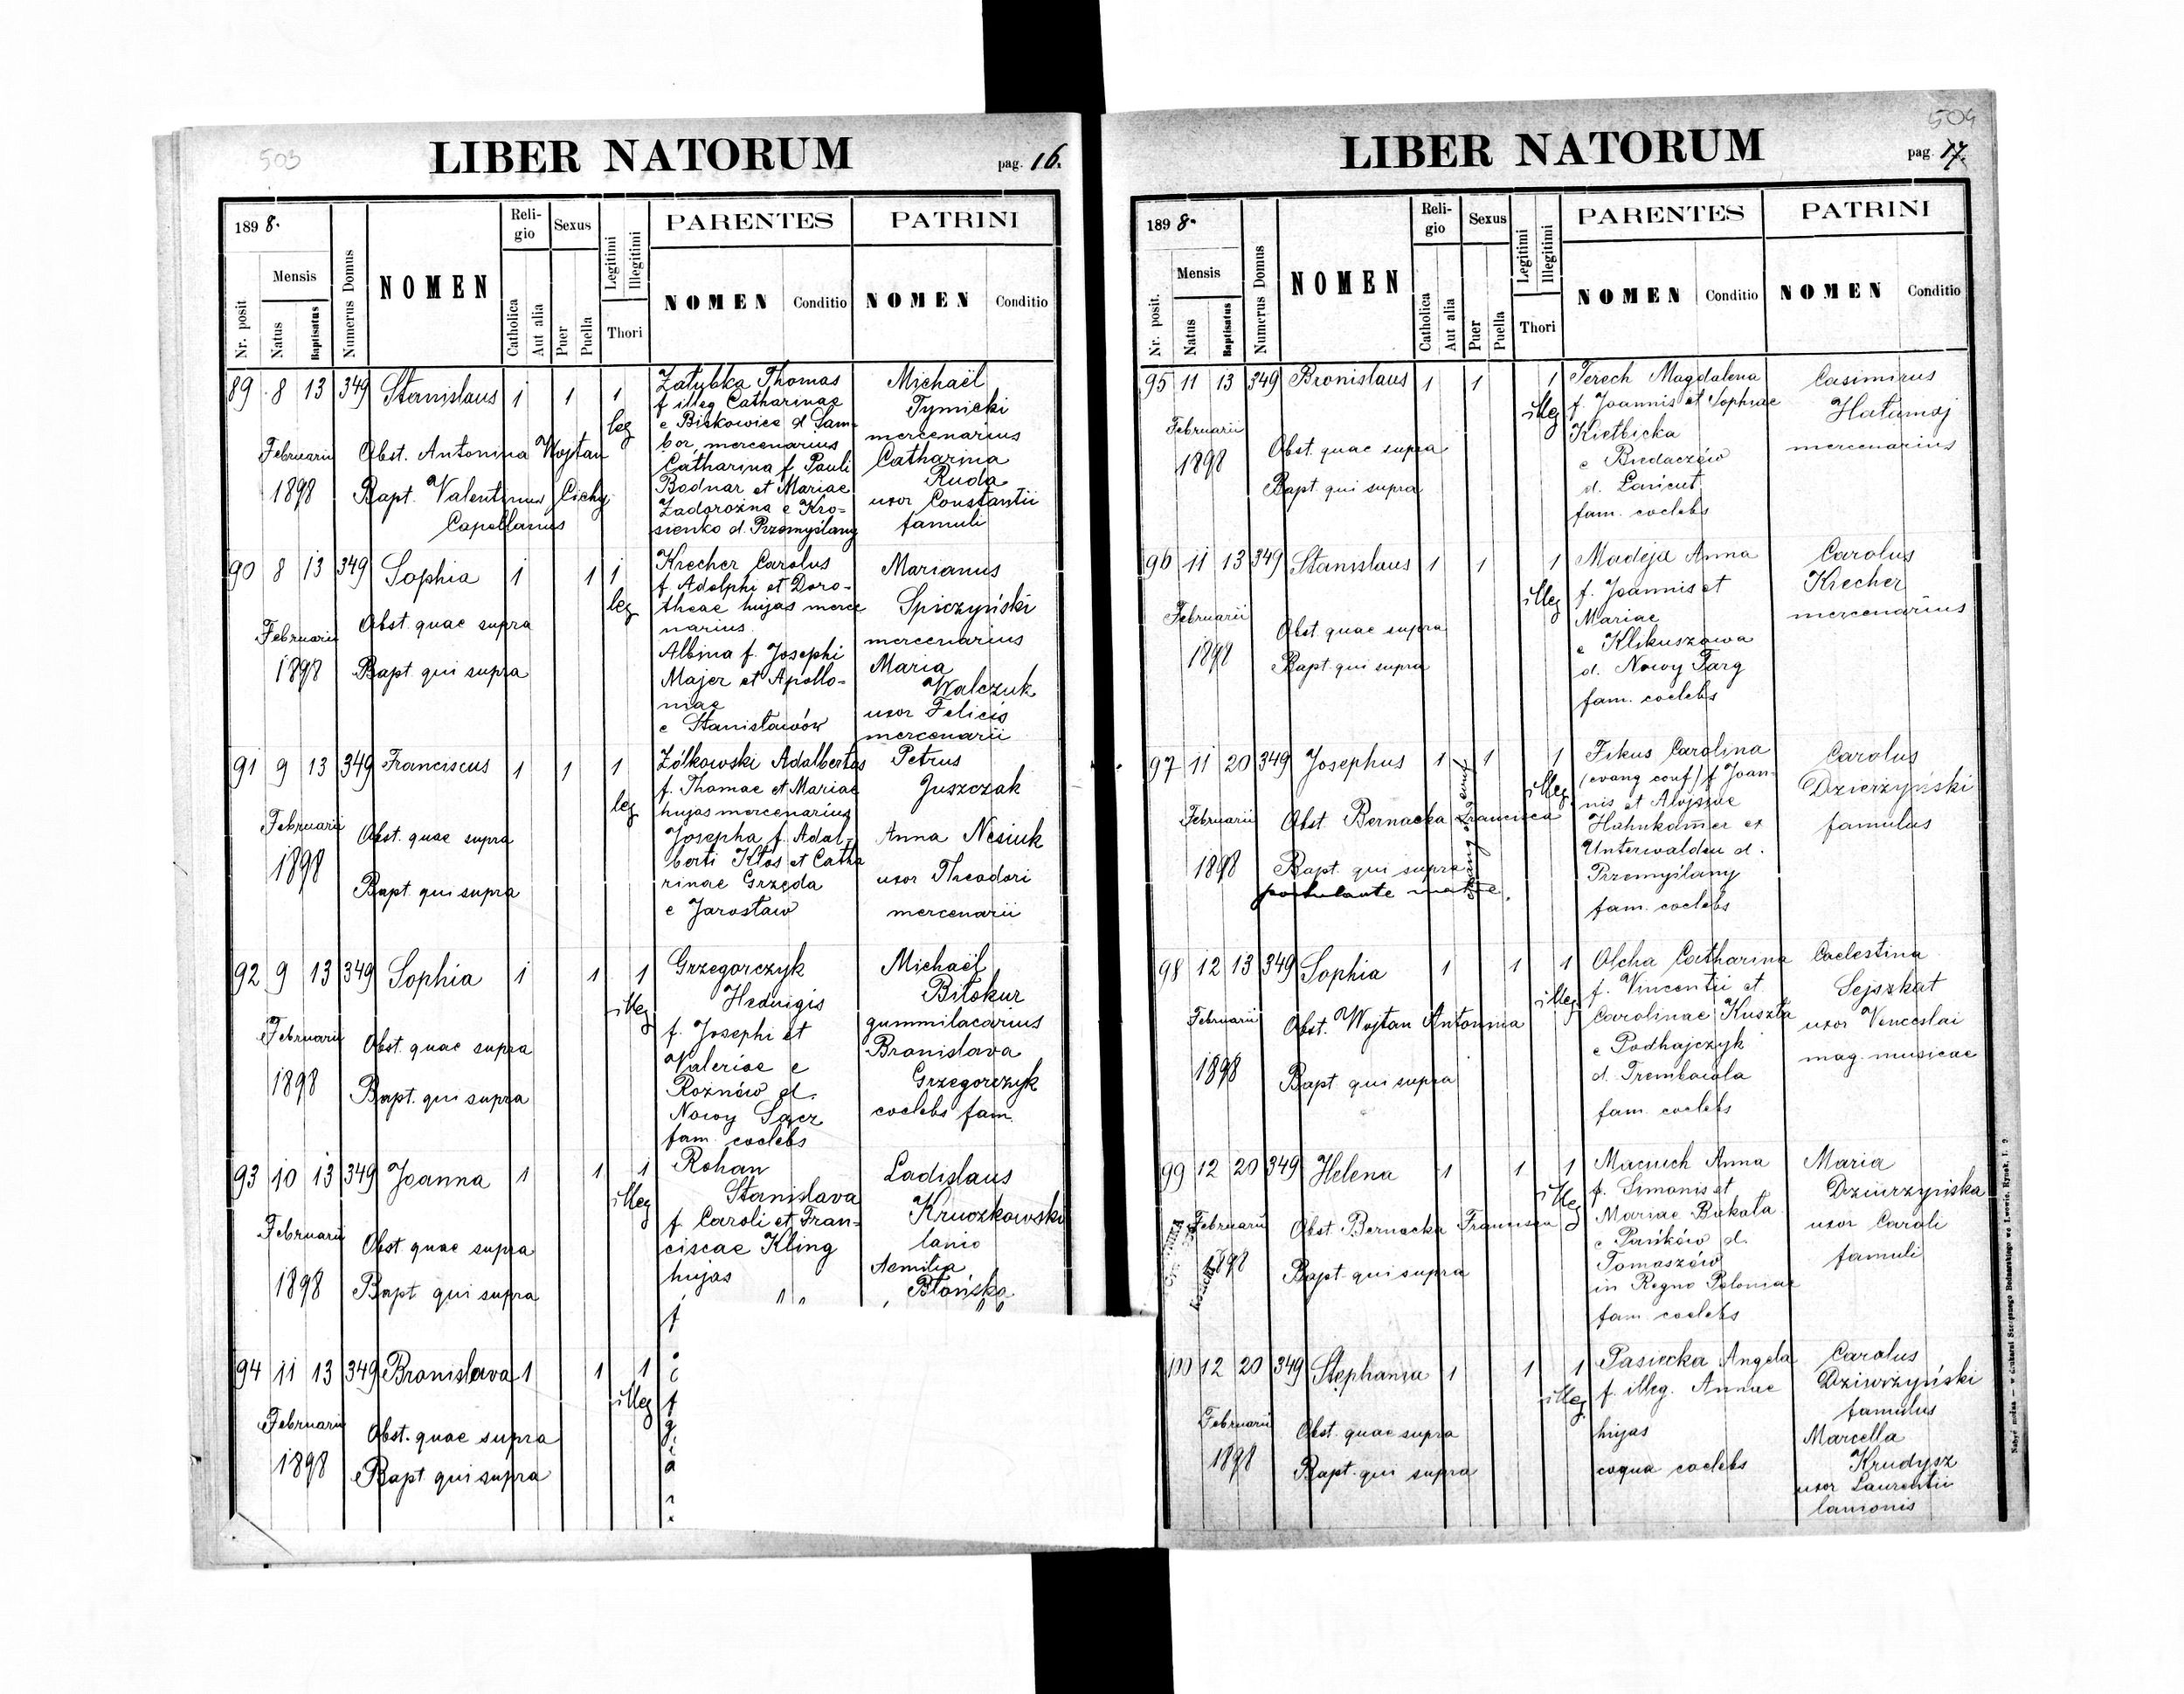 503
LIBER NATORUM
pag. 16.
1898.
Nr. posit
Mensis
Natus
Baptisatus
Numerus Domus
NOMEN
Reli-
gio
Catholica
Aut alia
Sexus
Puer
Puella
Legitimi
Illegitimi
Thori
PARENTES
NOMEN
Conditio
PATRINI
NOMEN
Conditio
89 8 13 349 Stanislaus 1 1 1
leg
Februarii
1898
Obst. Antonina Wojtan
Bapt. Valentinus Cichy
Capellanus
Załubka Thomas
f illeg Catharinae
e Biskowice d Sam-
bor, mercenarius
Catharina f. Pauli
Bodnar et Mariae
Zadorożna e Kro-
sienko d. Przemyślany
Michaël
Tymicki
mercenarius
Catharina
Ruda
uxor Constantii
famuli
90 8 13 349 Sophia 1 1 1
leg
Februarii
1898
Obst. quae supra
Bapt qui supra
Krecher Carolus
f. Adolphi et Doro-
theae hujas merce
narius.
Albina f. Josephi
Majer et Apollo-
niae
e Stanisławów
Marianus
Spiczyński
mercenarius
Maria
Walczuk
uxor Felicis
mercenarii
91 9 13 349 Franciscus 1 1 1
leg
Februarii
1898
Obst. quae supra
Bapt. qui supra
Żółkowski Adalbertus
f. Thomae et Mariae
hujas mercenarius
Josepha f. Adal-
berti Kłos et Catha
rinae Grzęda
e Jarosław
Petrus
Juszczak
Anna Nesiuk
uxor Theodori
mercenarii
92 9 13 349 Sophia 1 1 1
illeg
Februarii
1898
Obst. quae supra
Bapt. qui supra
Grzegorczyk
Hedvigis
f. Josephi et
Valeriae e
Rożnów d.
Nowy Sącz
fam. coelebs
Michaël
Biłokur
gummilacarius
Bronislava
Grzegorczyk
coelebs fam.
93 10 13 349 Joanna 1 1 1
illeg
Februarii
1898
Obst. quae supra
Bapt qui supra
Rohan
Stanislava
f. Caroli et Fran-
ciscae Kling
hujas
Ladislaus
Kruczkowski
lanio
Aemilia
Błońska
94 11 13 349 Bronislava 1 1 1
illeg
Februarii
1898
Obst. quae supra
Bapt qui supra
504
LIBER NATORUM
pag. 17.
1898.
Nr. posit.
Mensis
Natus
Baptisatus
Numerus Domus
NOMEN
Reli-
gio
Catholica
Aut alia
Sexus
Puer
Puella
Legitimi
Illegitimi
Thori
PARENTES
NOMEN
Conditio
PATRINI
NOMEN
Conditio
95 11 13 349 Bronislaus 1 1 1
illeg
Februarii
1898
Obst. quae supra
Bapt. qui supra
Terech Magdalena
f. Joannis et Sophiae
Kiełbicka
e Biedaczów
d. Łańcut
fam. coelebs
Casimirus
Hałunaj
mercenarius
96 11 13 349 Stanislaus 1 1 1
illeg
Februarii
1898
Obst. quae supra
Bapt. qui supra
Madeja Anna
f. Joannis et
Mariae
e Klikuszowa
d. Nowy Targ
fam. coelebs
Carolus
Krecher
mercenarius
97 11 20 349 Josephus 1 1 1
illeg.
Februarii
1898
Obst. Bernacka Francisca
Bapt. qui supra
postulante matre.
Fikus Carolina
(evang conf) f. Joan-
nis et Aloysiae
Hahnkamer ex
Unterwalden d.
Przemyślany
fam. coelebs
Carolus
Dzierżyński
famulus
98 12 13 349 Sophia 1 1 1
illeg
Februarii
1898
Obst. Wojtan Antonina
Bapt. qui supra
Olcha Catharina
f. Vincentii et
Carolinae Kuszła
e Podhajczyk
d. Trembowla
fam. coelebs
Coelestina
Sejszkat
uxor Venceslai
mag. musicae
99 12 20 349 Helena 1 1 1
illeg
Februarii
1898
Obst Bernacka Francisca
Bapt. qui supra
Maciuch Anna
f. Simonis et
Mariae Bukała
e Pańków d.
Tomaszów
in Regno Poloniae
fam coelebs
Maria
Dziurzyńska
uxor Caroli
famuli
100 12 20 349 Stephania 1 1 1
illeg.
Februarii
1898
Obst. quae supra
Bapt. qui supra
Pasiecka Angela
f. illeg. Annae
hujas
coqua coelebs
Carolus
Dziurżyński
famulus
Marcella
Krudysz
uxor Laurentii
lanionis